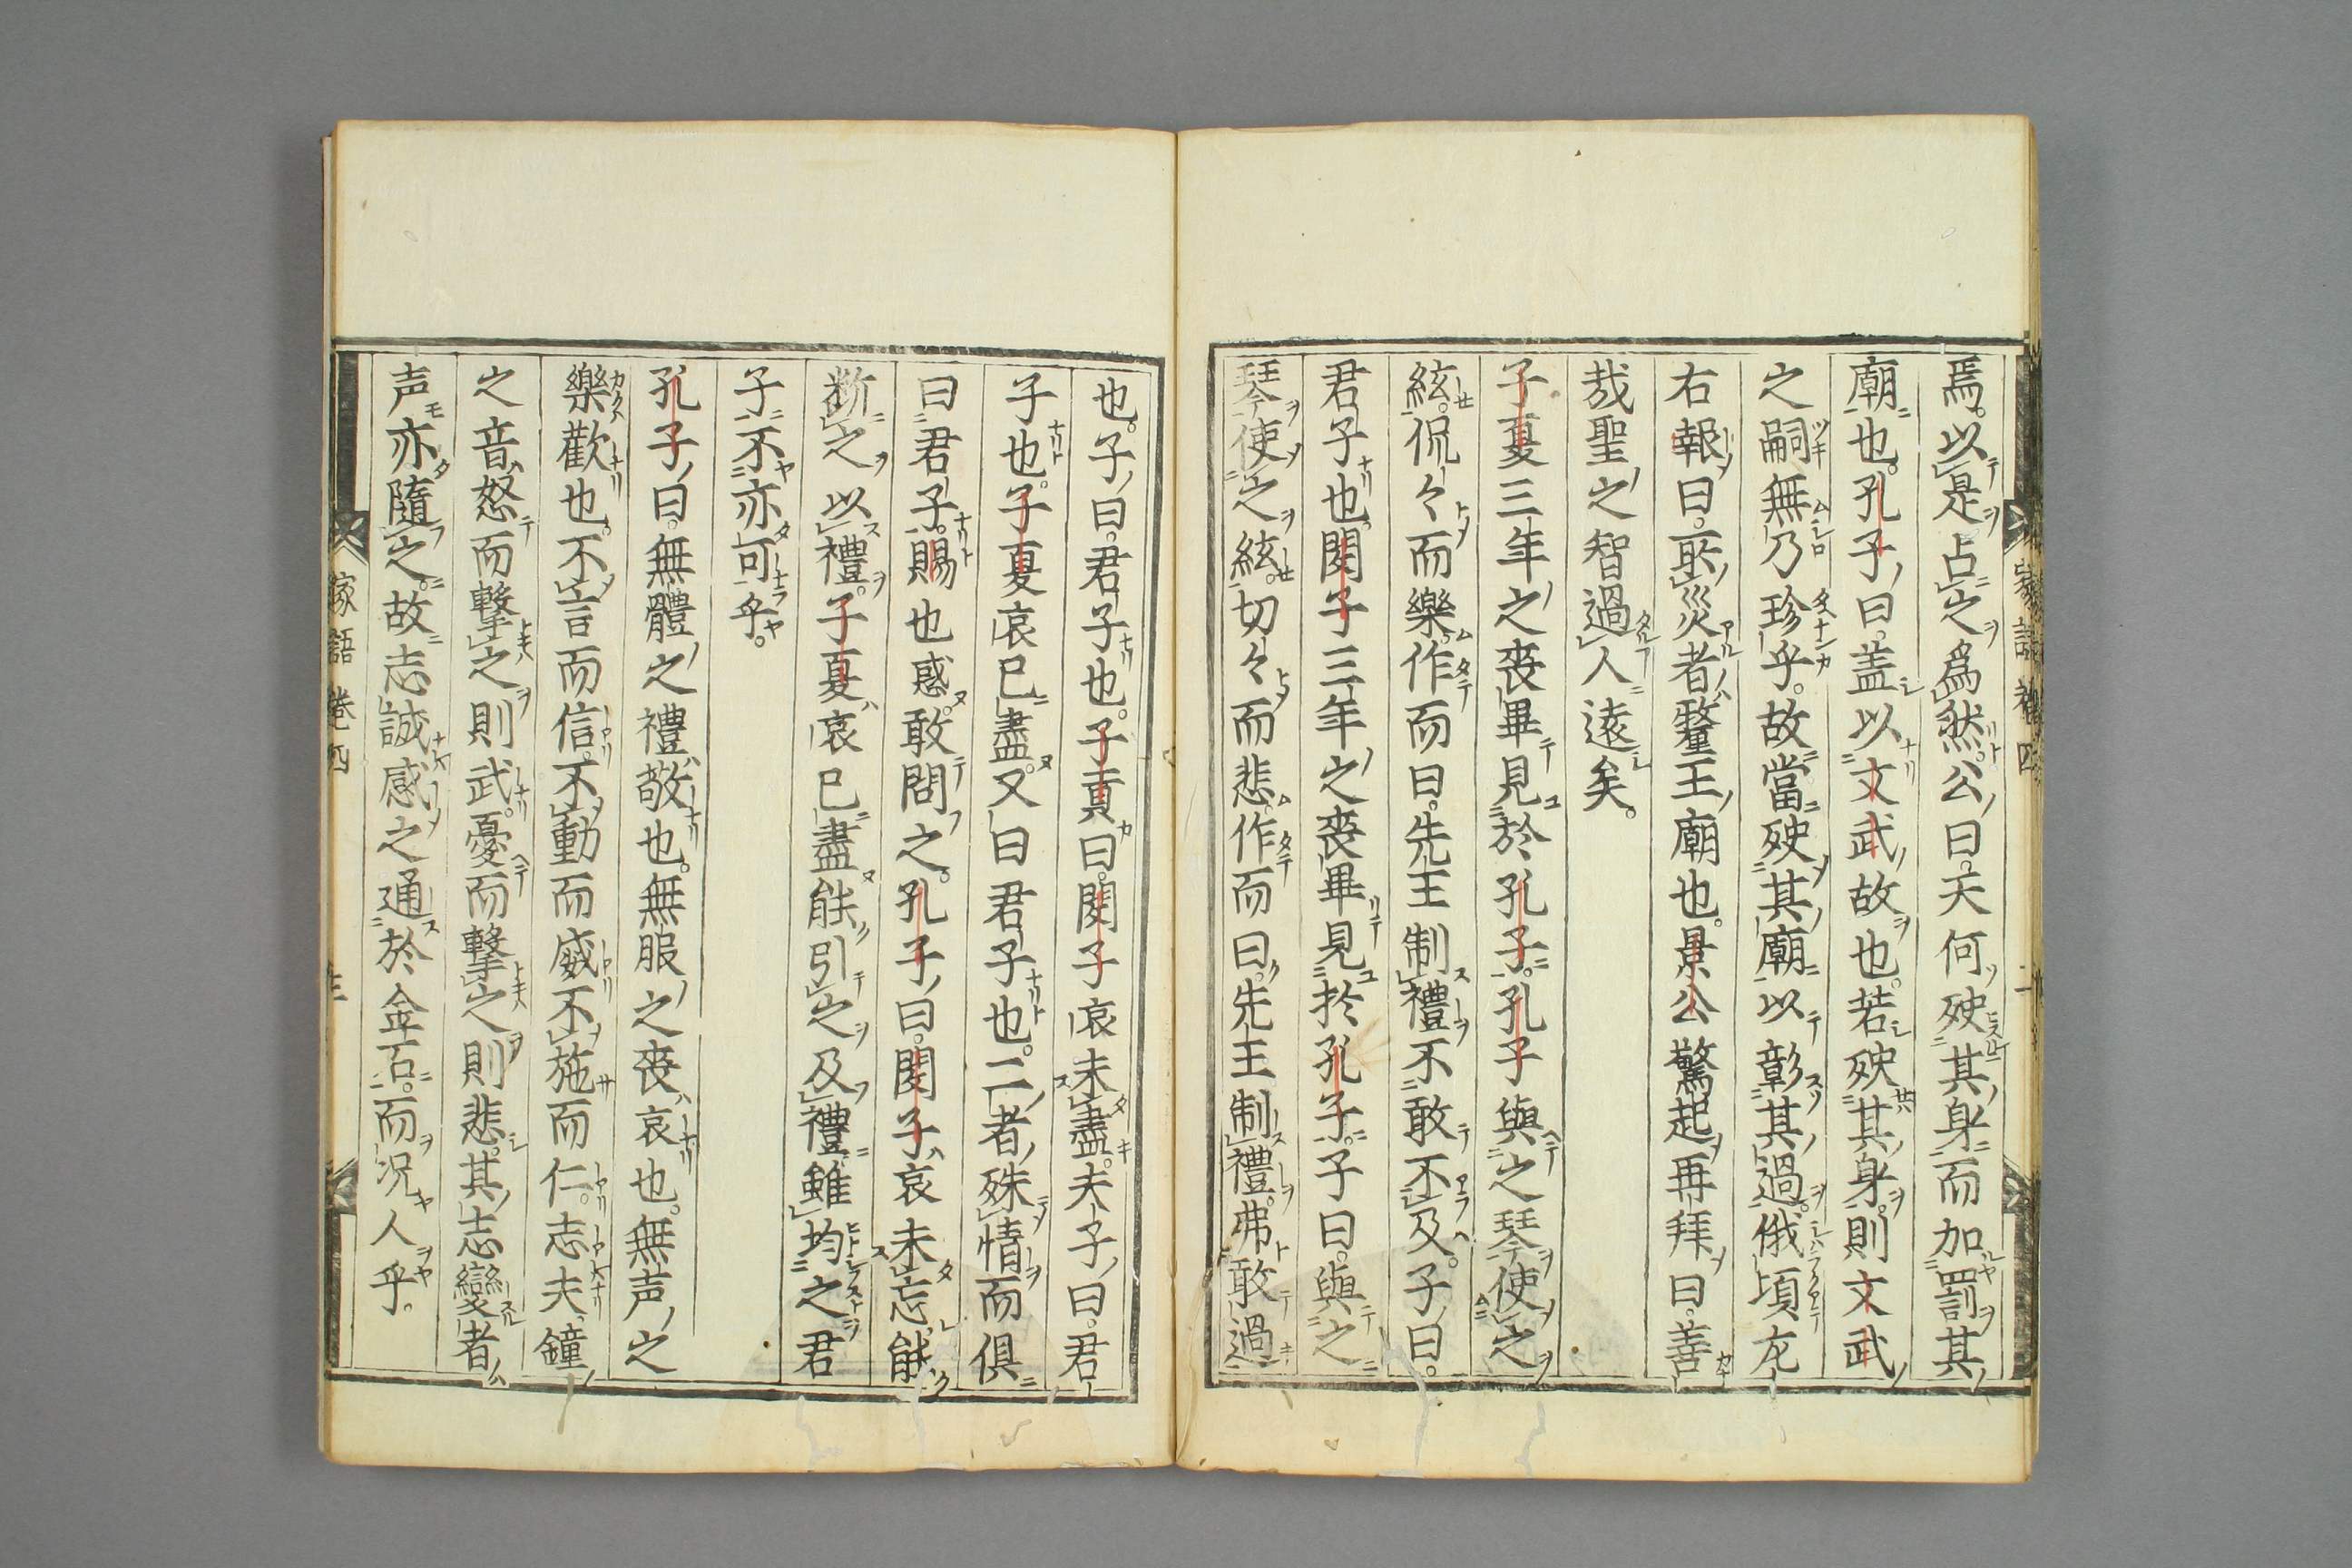 焉。以是占之爲然。公曰。天何殃其身而加罰其
廟也。孔子曰。盖以文武故也。若殃其身。則文武
之嗣無乃殄乎。故當殃其廟以彰其過。俄頃左
右報曰。所災者釐王廟也。景公驚起再拜曰。善
哉聖之智過人遠矣。
子夏三年之喪畢見於孔子。孔子與之琴使之
絃。侃々而樂。作而曰。先王制禮不敢不及。子曰。
君子也。閔子三年之喪畢見於孔子。子曰。與之
琴使之絃。切々而悲。作而曰。先王制禮。弗敢過
也。子曰。君子也。子貢曰。閔子哀未盡。夫子曰。君
子也。子夏哀已盡。又曰君子也。二者殊情而俱
曰君子。賜也惑。敢問之。孔子曰。閔子哀未忘。能
断之以禮。子夏哀已盡能引之及禮雖均之君
子不亦可乎。
孔子曰。無體之禮敬也。無服之喪哀也。無声之
樂歡也。不言而信。不動而威不施而仁。志夫鐘
之音怒而擊之則武。憂而擊之則悲。其志變者
声亦隨之。故志誠感之通於金石。而况人乎。
家語卷四
二
家語卷四
三